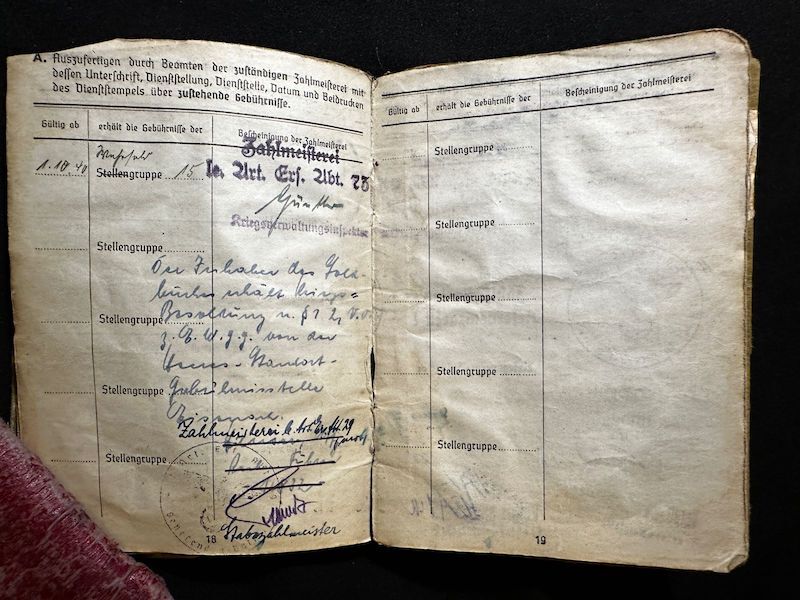 A. Auszufertigen durch Beamten der zuständigen Zahlmeisterei mit
dessen Unterschrift, Dienststellung, Dienststelle, Datum und Beidrucken
des Dienststempels über zustehende Gebührnisse.
Gültig ab
erhält die Gebührnisse der
Bescheinigung der Zahlmeisterei
1.10.40
Stellengruppe 15
Zahlmeisterei
le. Art. Ers. Abt.
Günther
Kriegsverwaltungsinspektor
Stellengruppe
Der Inhaber des Sold-
buches erhält Kriegs-
Besoldung n. § 1 2,
Stellengruppe
von der
Heeres-Standort-
Gebührnisstelle
Stellengruppe
Zahlmeisterei
Stellengruppe
Stabszahlmeister
18
Gültig ab
erhält die Gebührnisse der
Bescheinigung der Zahlmeisterei
Stellengruppe
Stellengruppe
Stellengruppe
Stellengruppe
Stellengruppe
19